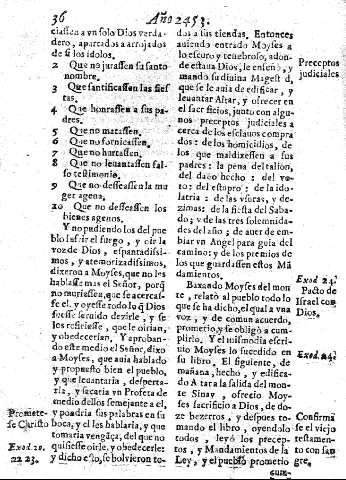 36
Año 2453.
ciassen a vn solo Dios verda-
dero, apartados a arrojados
de si los idolos.
2 Que no jurassen su santo
nombre.
3 Que santificassen las fies
tas.
4 Que honrassen a sus pa-
dres.
5 Que no matassen.
6 Que no fornicassen.
7 Que no hurtassen.
8 Que no leuantassen fal-
so testimonio.
9 Que no desseassen la mu
ger agena.
10 Que no desseassen los
bienes agenos.
Y no pudiendo los del pue
blo sufrir el fuego, y oir la
voz de Dios, espantadissi-
mos, y atemorizadissimos,
dixeron a Moyses, que no les
hablasse mas el Señor, porq̃
no muriessen, que se acercas-
se el, y oyesse todo lo q̃ Dios
fuesse seruido dezirle, y se
los refiriesse, que le oirian,
y obedecerian. Y aproban-
do este medio el Señor, dixo
a Moyses, que auia hablado
y propuesto bien el pueblo,
y que leuantaria, desperta-
ria, y sacaria vn Profeta de
medio dellos semejante a el,
y pondria sus palabras en su
boca, y el les hablaria, y que
tomaria vengãça, del que no
quisiesse oirle, y obedecerle:
y dicho esto, se boluieron to-
Promete-
se Christo
Exod. 20.
22 23.
dos a sus tiendas. Entonces
auiendo entrado Moyses a
lo escuro y tenebroso, adon-
de estaua Dios, le enseñò, y
mandò su diuina Magestad,
que se le auia de edificar, y
leuantar Altar, y ofrecer en
el sacrificios, junto con algu-
nos preceptos judiciales a
cerca de los esclauos compra
dos: de los homicidios, de
los que maldizessen a sus
padres: la pena del talion,
del daño hecho: del vo-
to: del estupro: de la ido-
latria: de las vsuras, y de-
zimas: de la fiesta del Saba-
do; y de las tres solemnida-
des del año; de auer de em-
biar vn Angel para guia del
camino; y de los premios de
los que guardassen estos Mã
damientos.
Baxando Moyses del mon
te, relatò al pueblo todo lo
que se ha dicho, el qual a vna
voz, y de comun acuerdo,
prometio, y se obligò a cum-
plirlo. Y el mismo dia escri-
uio Moyses lo sucedido en
su libro. El siguiente, de
mañana, hecho, y edifica-
do Altar a la salida del mon-
te Sinay, ofrecio Moy-
ses sacrificio a Dios, de do-
ze bezerros, y despues to-
mando el libro, oyendolo
todos, leyò los precep-
tos, y Mandamientos de la
Ley, y el pueblo prometio
cum-
Preceptos
judiciales
Exod 24.
Pacto de
Israel con
Dios.
Exod. 24.
Confirma
se el viejo
testamen-
to con san
gre.